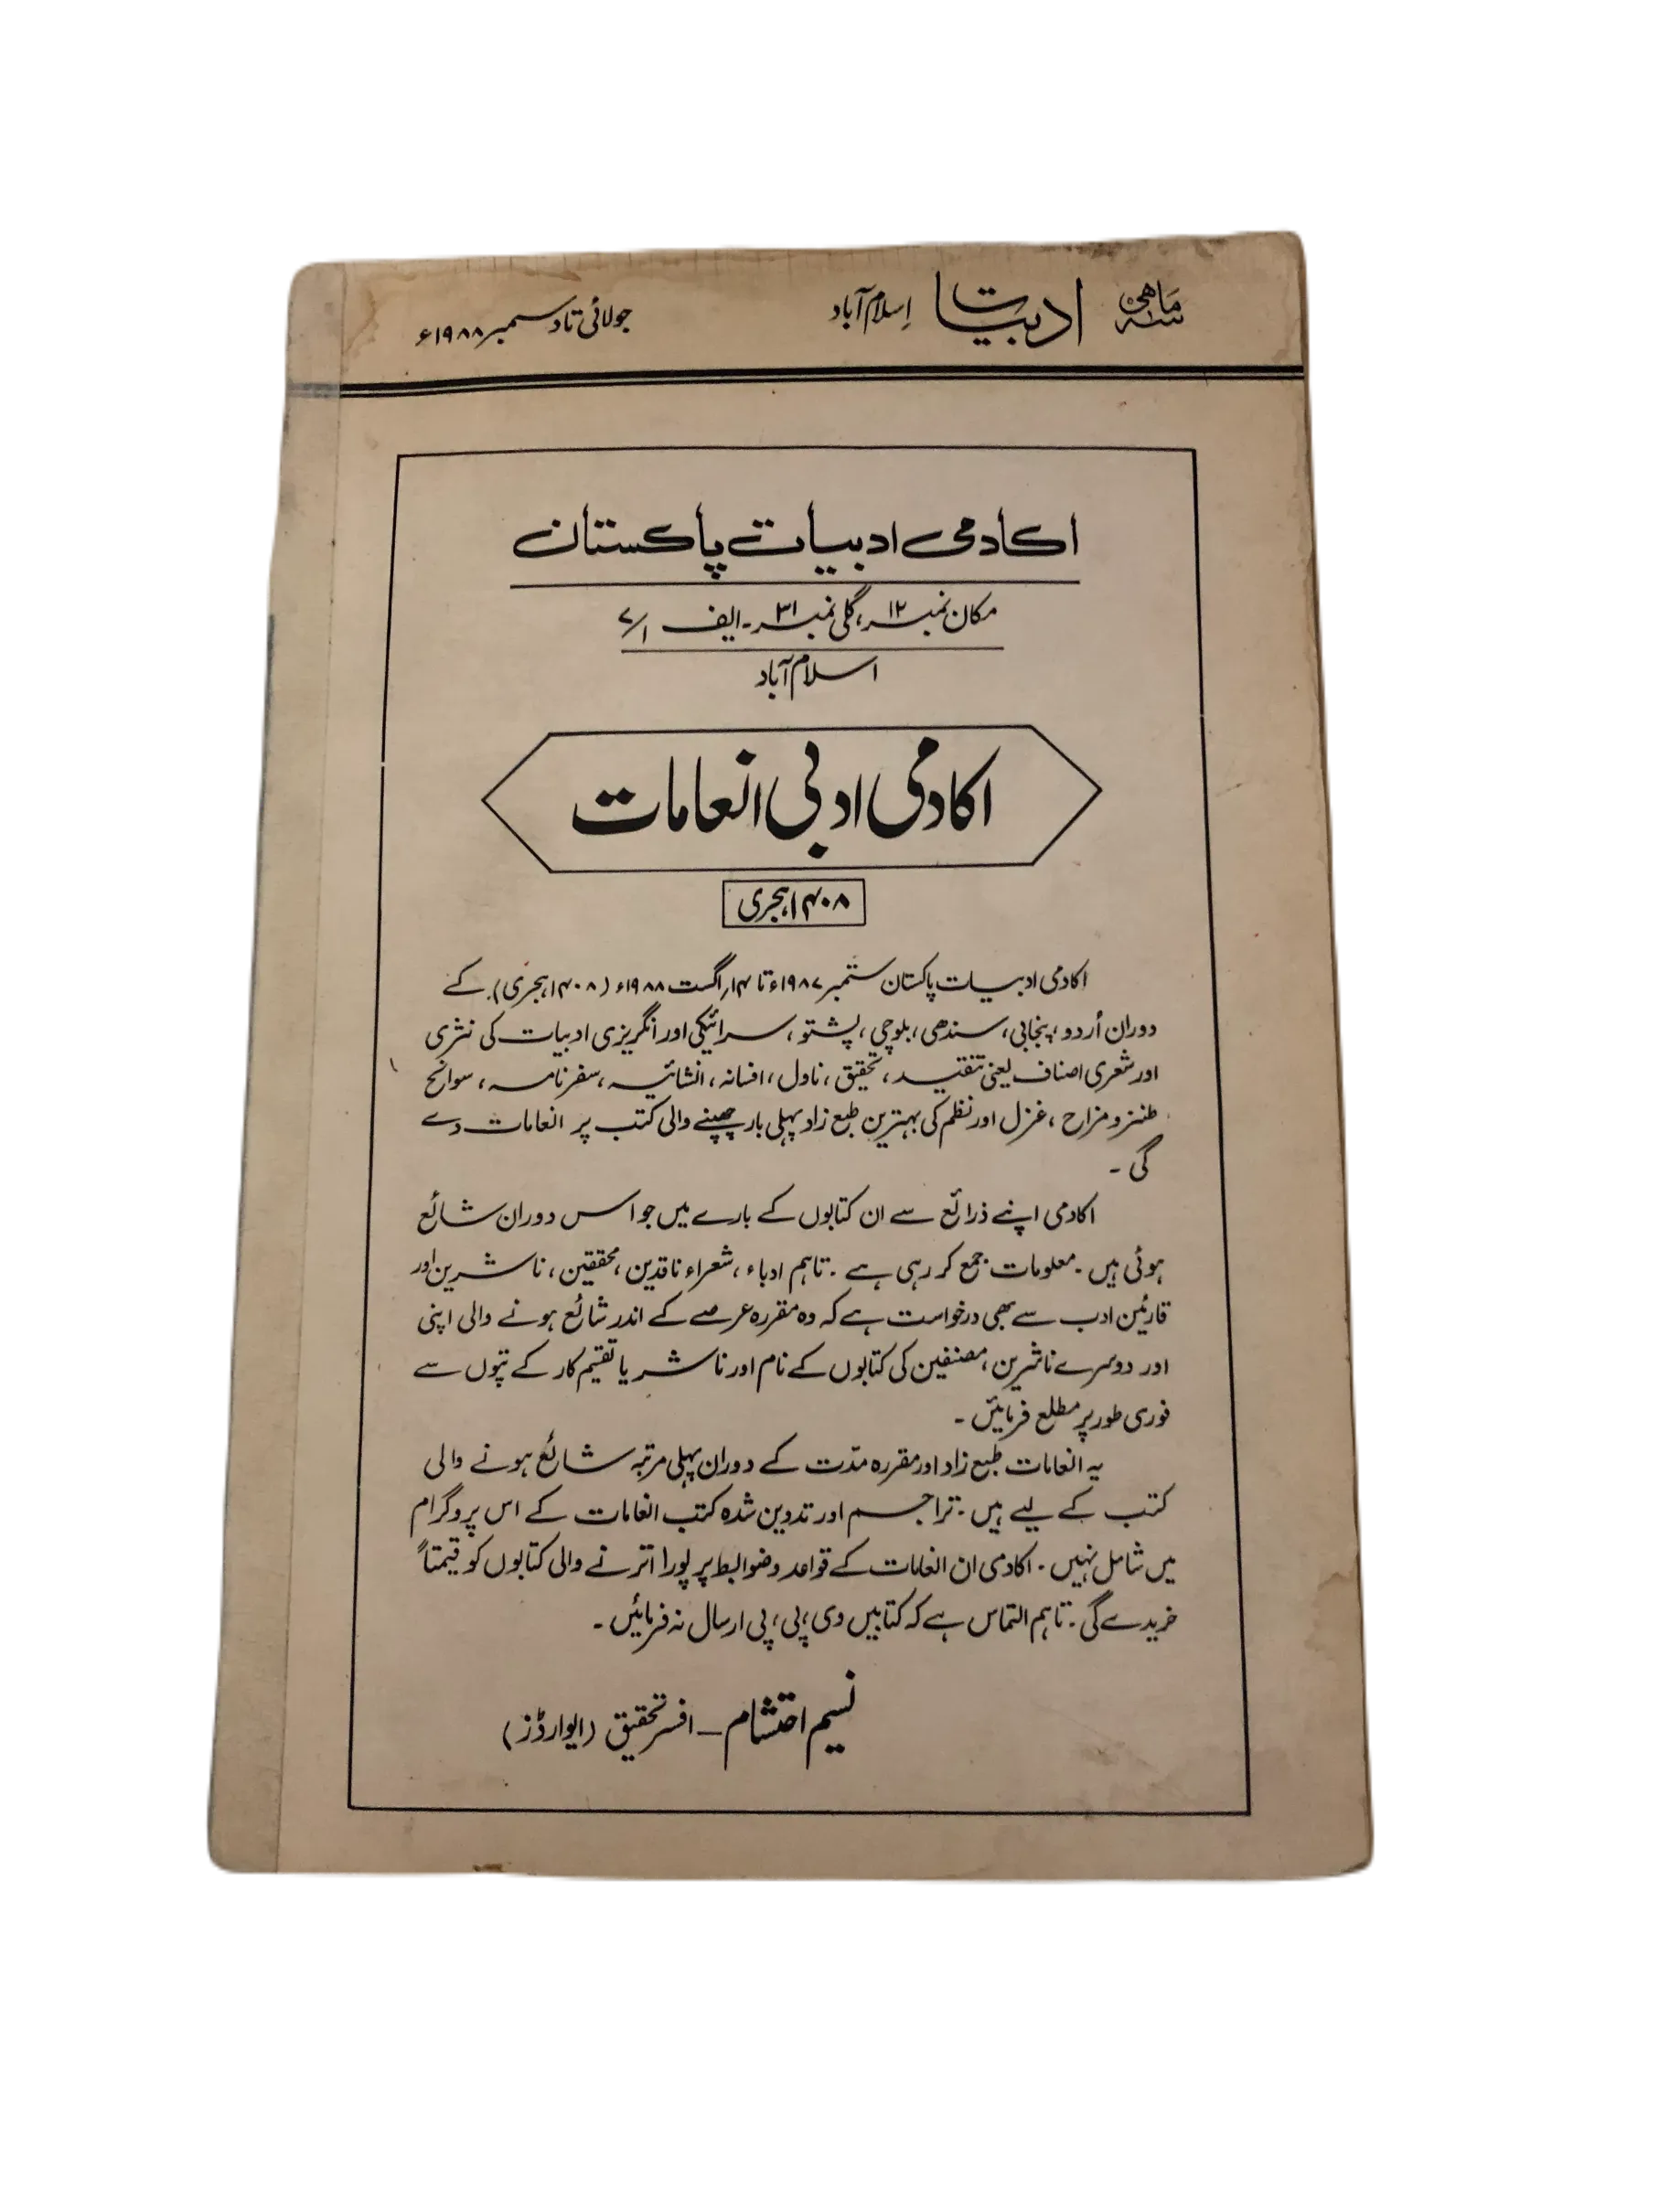 سہ ماہی ادبیات اِسلام آباد
جولائی تا دسمبر ۱۹۸۸ء
اکادمی ادبیات پاکستان
مکان نمبر ۱۲، گلی نمبر ۳۱۔ ایف ۷/۱
اسلام آباد
اکادمی ادبی انعامات
۱۴۰۸ ہجری
اکادمی ادبیات پاکستان ستمبر ۱۹۸۷ء تا ۱۴ر اگست ۱۹۸۸ء (۱۴۰۸ ہجری)۔ کے
دوران اُردو، پنجابی، سندھی، بلوچی، پشتو، سرائیکی اور انگریزی ادبیات کی نثری
اور شعری اصناف یعنی تنقید، تحقیق، ناول، افسانہ، انشائیہ، سفرنامہ، سوانح
طنز و مزاح، غزل اور نظم کی بہترین طبع زاد پہلی بار چھپنے والی کتب پر انعامات دے
گی۔
اکادمی اپنے ذرائع سے ان کتابوں کے بارے میں جو اس دوران شائع
ہوئی ہیں۔ معلومات جمع کر رہی ہے۔ تاہم ادباء، شعراء ناقدین، محققین، ناشرین اور
قارئین ادب سے بھی درخواست ہے کہ وہ مقررہ عرصے کے اندر شائع ہونے والی اپنی
اور دوسرے ناشرین، مصنفین کی کتابوں کے نام اور ناشر یا تقسیم کار کے پتوں سے
فوری طور پر مطلع فرمائیں۔
یہ انعامات طبع زاد اور مقررہ مدّت کے دوران پہلی مرتبہ شائع ہونے والی
کتب کے لیے ہیں۔ تراجم اور تدوین شدہ کتب انعامات کے اس پروگرام
میں شامل نہیں۔ اکادمی ان انعامات کے قواعد و ضوابط پر پورا اترنے والی کتابوں کو قیمتاً
خریدے گی۔ تاہم التماس ہے کہ کتابیں وی، پی، پی ارسال نہ فرمائیں۔
نسیم احتشام – افسر تحقیق (ایوارڈز)